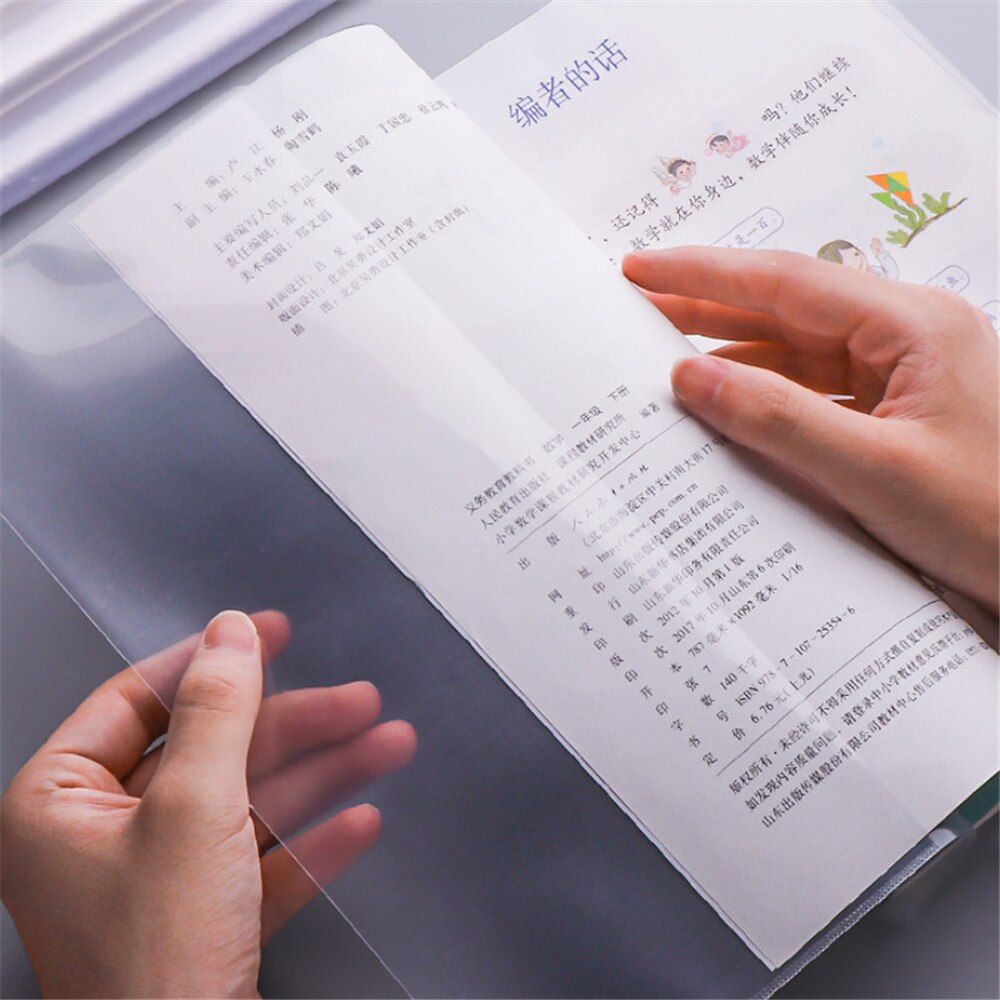 主 编：卢 江 杨 刚
副 主 编：王永春 陶雪鹤
主要编写人员：刘品一 袁玉霞 丁国忠
责任编辑：张 华 陈 曦
美术编辑：郑文娟
封面设计：吕 旻 郑文娟
版面设计：北京吴勇设计工作室（含封面）
插 图：北京吴勇设计工作室
义务教育教科书 数学 一年级 下册
人民教育出版社 课程教材研究所 编著
小学数学课程教材研究开发中心
出 版 人民教育出版社
（北京市海淀区中关村南大街17号
网 址 http://www.pep.com.cn
重 印 山东出版传媒股份有限公司
发 行 山东新华书店集团有限公司
印 刷 山东新华印务有限责任公司
版 次 2012年10月第1版
印 次 2017年10月山东第6次印刷
开 本 787毫米×1092毫米 1/16
印 张 7
字 数 140千字
书 号 ISBN 978-7-107-25354-6
定 价 6.76元（上光）
版权所有·未经许可不得采用任何方式擅自复制或使用
如发现内容质量问题，请登录中小学教材意见反馈平台：
山东出版传媒股份有限公司教材中心售后服务电话：
编者的话
吗？他们继续
数学伴随你成长！
还记得
数学就在你身边，
是一百。